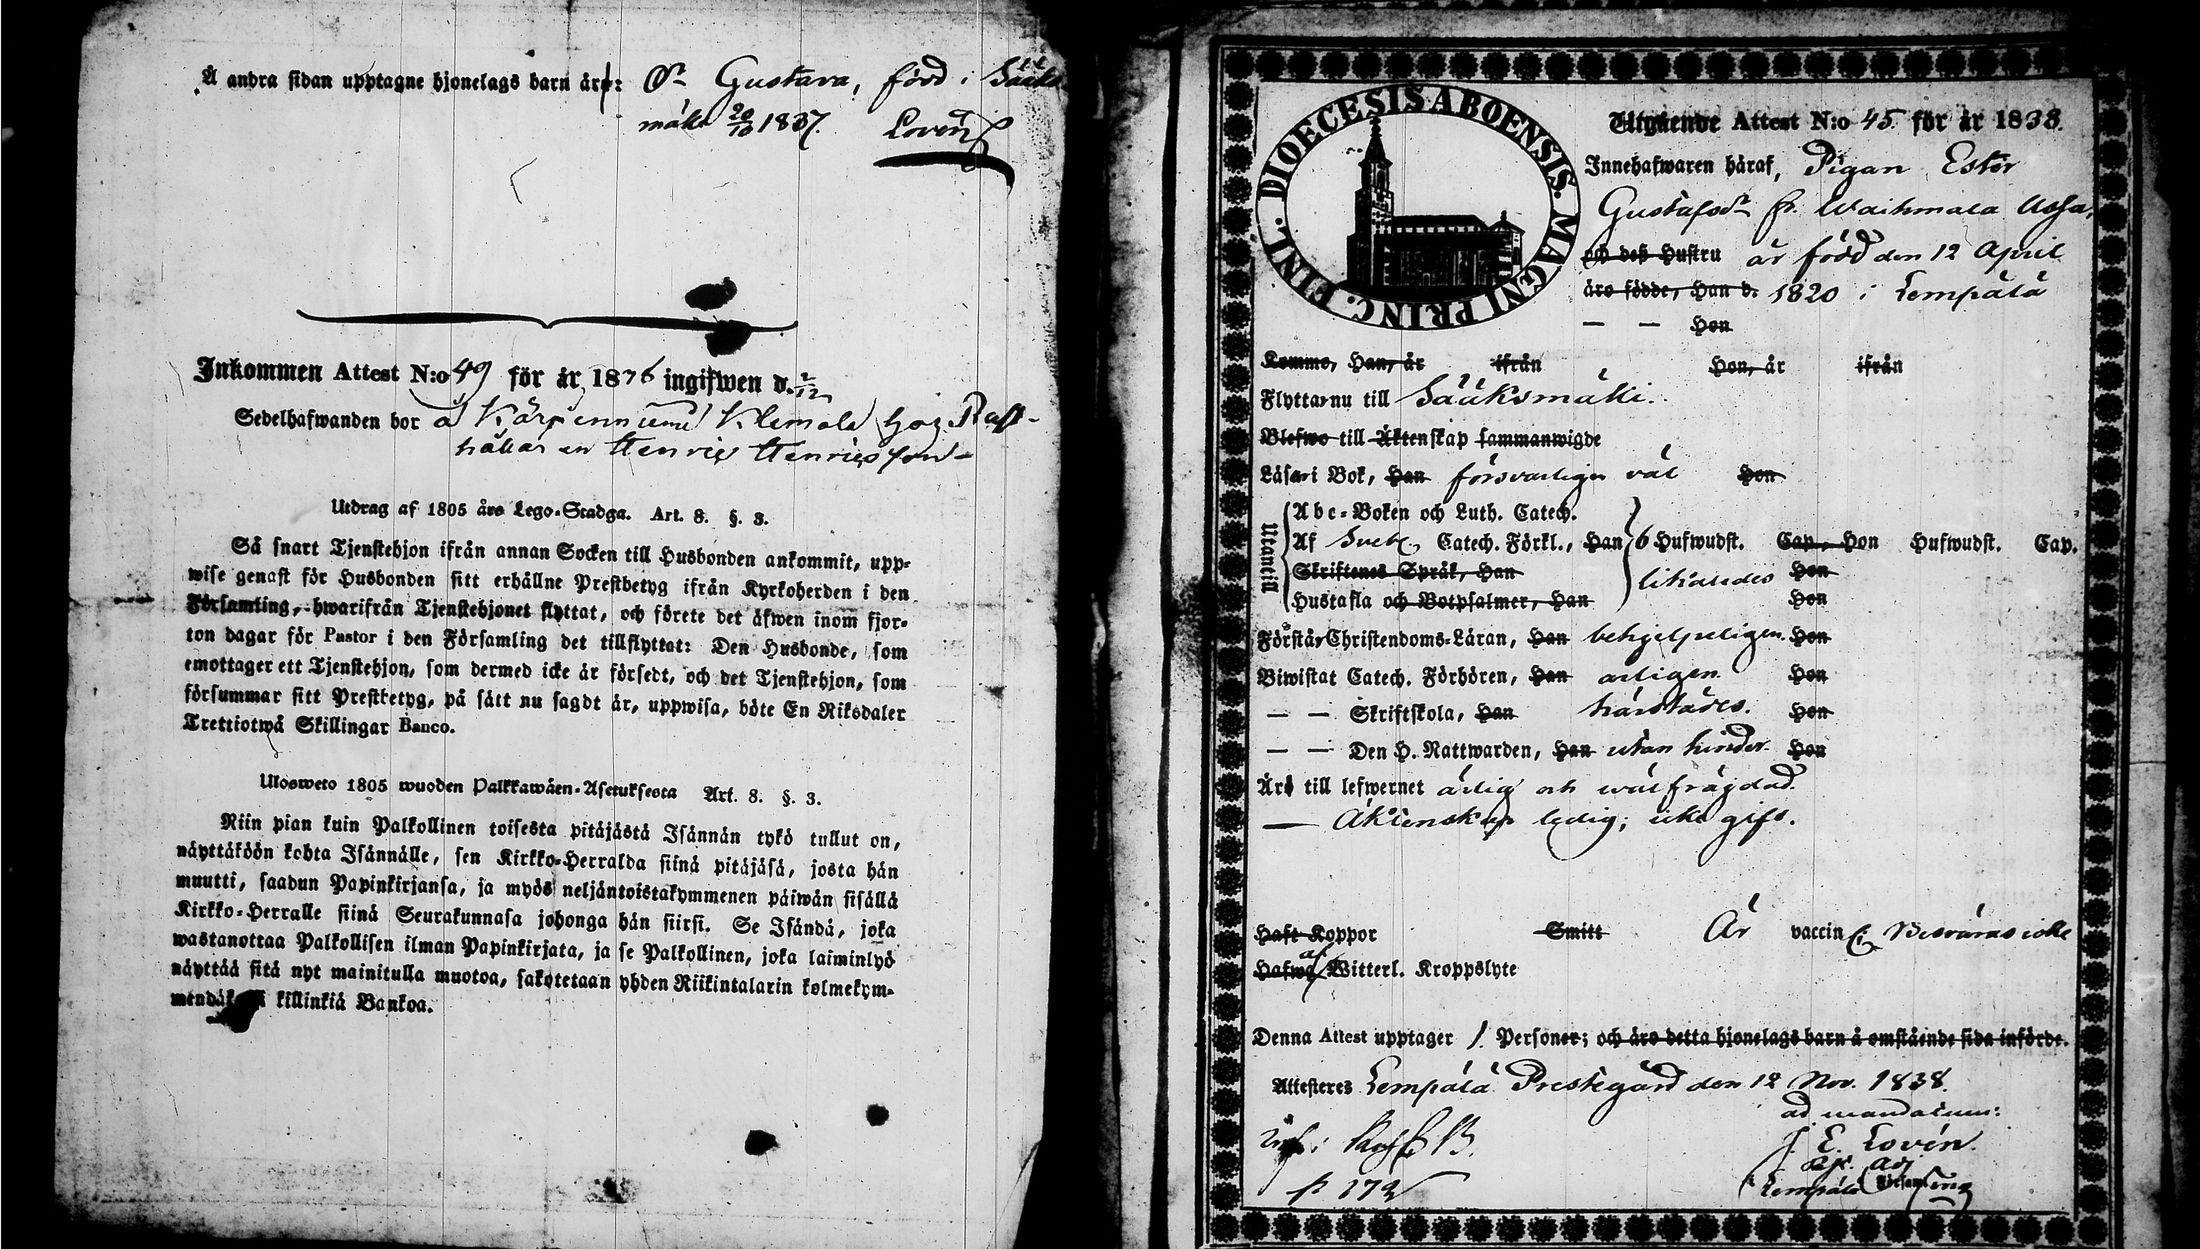 Å andra sidan upptagne hjonelags barn är: Dr Gustava, född i Sääks
mäki 20/10 1837. Lovén
Inkommen Attest N:o 49 för år 1876 ingifwen d. 2/12
Sedelhafwanden bor å Klemola hos
Henric Henricsson
Utdrag af 1805 års Lego-Stadga. Art. 8. §. 3.
Så snart Tjenstehjon ifrån annan Socken till Husbonden ankommit, upp-
wise genast för Husbonden sitt erhållne Prestbetyg ifrån Kyrkoherden i den
Församling, hwarifrån Tjenstehjonet flyttat, och förete det äfwen inom fjor-
ton dagar för Pastor i den Församling det tillflyttat: Den Husbonde, som
emottager ett Tjenstehjon, som dermed icke är försedt, och det Tjenstehjon, som
försummar sitt Prestbetyg, på sätt nu sagdt är, uppwisa, böte En Riksdaler
Trettiotwå Skillingar Banco.
Ulosweto 1805 wuoden Palkkawäen-Asetuksesta Art. 8. §. 3.
Niin pian kuin Palkollinen toisesta pitäjästä Isännän tykö tullut on,
näyttäköön kohta Isännälle, sen Kirkko-Herralda siinä pitäjäsä, josta hän
muutti, saadun Papinkirjansa, ja myös neljäntoistakymmenen päiwän sisällä
Kirkko-Herralle siinä Seurakunnasa johonga hän siirsi. Se Isändä, joka
wastanottaa Palkollisen ilman Papinkirjata, ja se Palkollinen, joka laiminlyö
näyttää sitä nyt mainitulla muotoa, sakotetaan yhden Riikintalarin kolmekym-
killinkiä Bankoa.
DIOECESIS ABOENSIS. MAGNI PRINC. FINL.
Utgående Attest N:o 45 för år 1838.
Innehafwaren häraf, Pigan Ester
Gustafsdr fr. Waihmala
och deß Hustru är född den 12 April
äro födde, Han d. 1820 i Lempälä
— — Hon
Komme, Han, år ifrån Hon, år ifrån
Flyttar nu till Sääksmäki.
Blefwo till Äktenskap sammanwigde
Läsa i Bok, Han försvarligen väl Hon
Utantill
Abc-Boken och Luth. Catech.
Af Sveb. Catech. Förkl., Han 6 Hufwudst. Cap., Hon Hufwudst. Cap.
Skriftenes Språk, Han likaledes Hon
Hustafla och Botpsalmer, Han Hon
Förstår Christendoms-Läran, Han behjelpeligen Hon
Biwistat Catech. Förhören, Han årligen Hon
— — Skriftskola, Han härstädes. Hon
— — Den H. Nattwarden, Han utan hinder. Hon
Är till lefwernet ärlig och wälfrägdad.
— Äktenskap ledig; icke gift.
Haft Koppor Smitt Är vaccin: Besväras icke
Hafwa af Witterl. Kroppslyte
Denna Attest upptager 1 Personer; och äro detta hjonelags barn å omstående sida införde.
Attesteres Lempälä Prestegård den 12 Nov. 1838.
ad mandatum:
J. E. Lovén.
Adj
p 172
Lempälä Församling